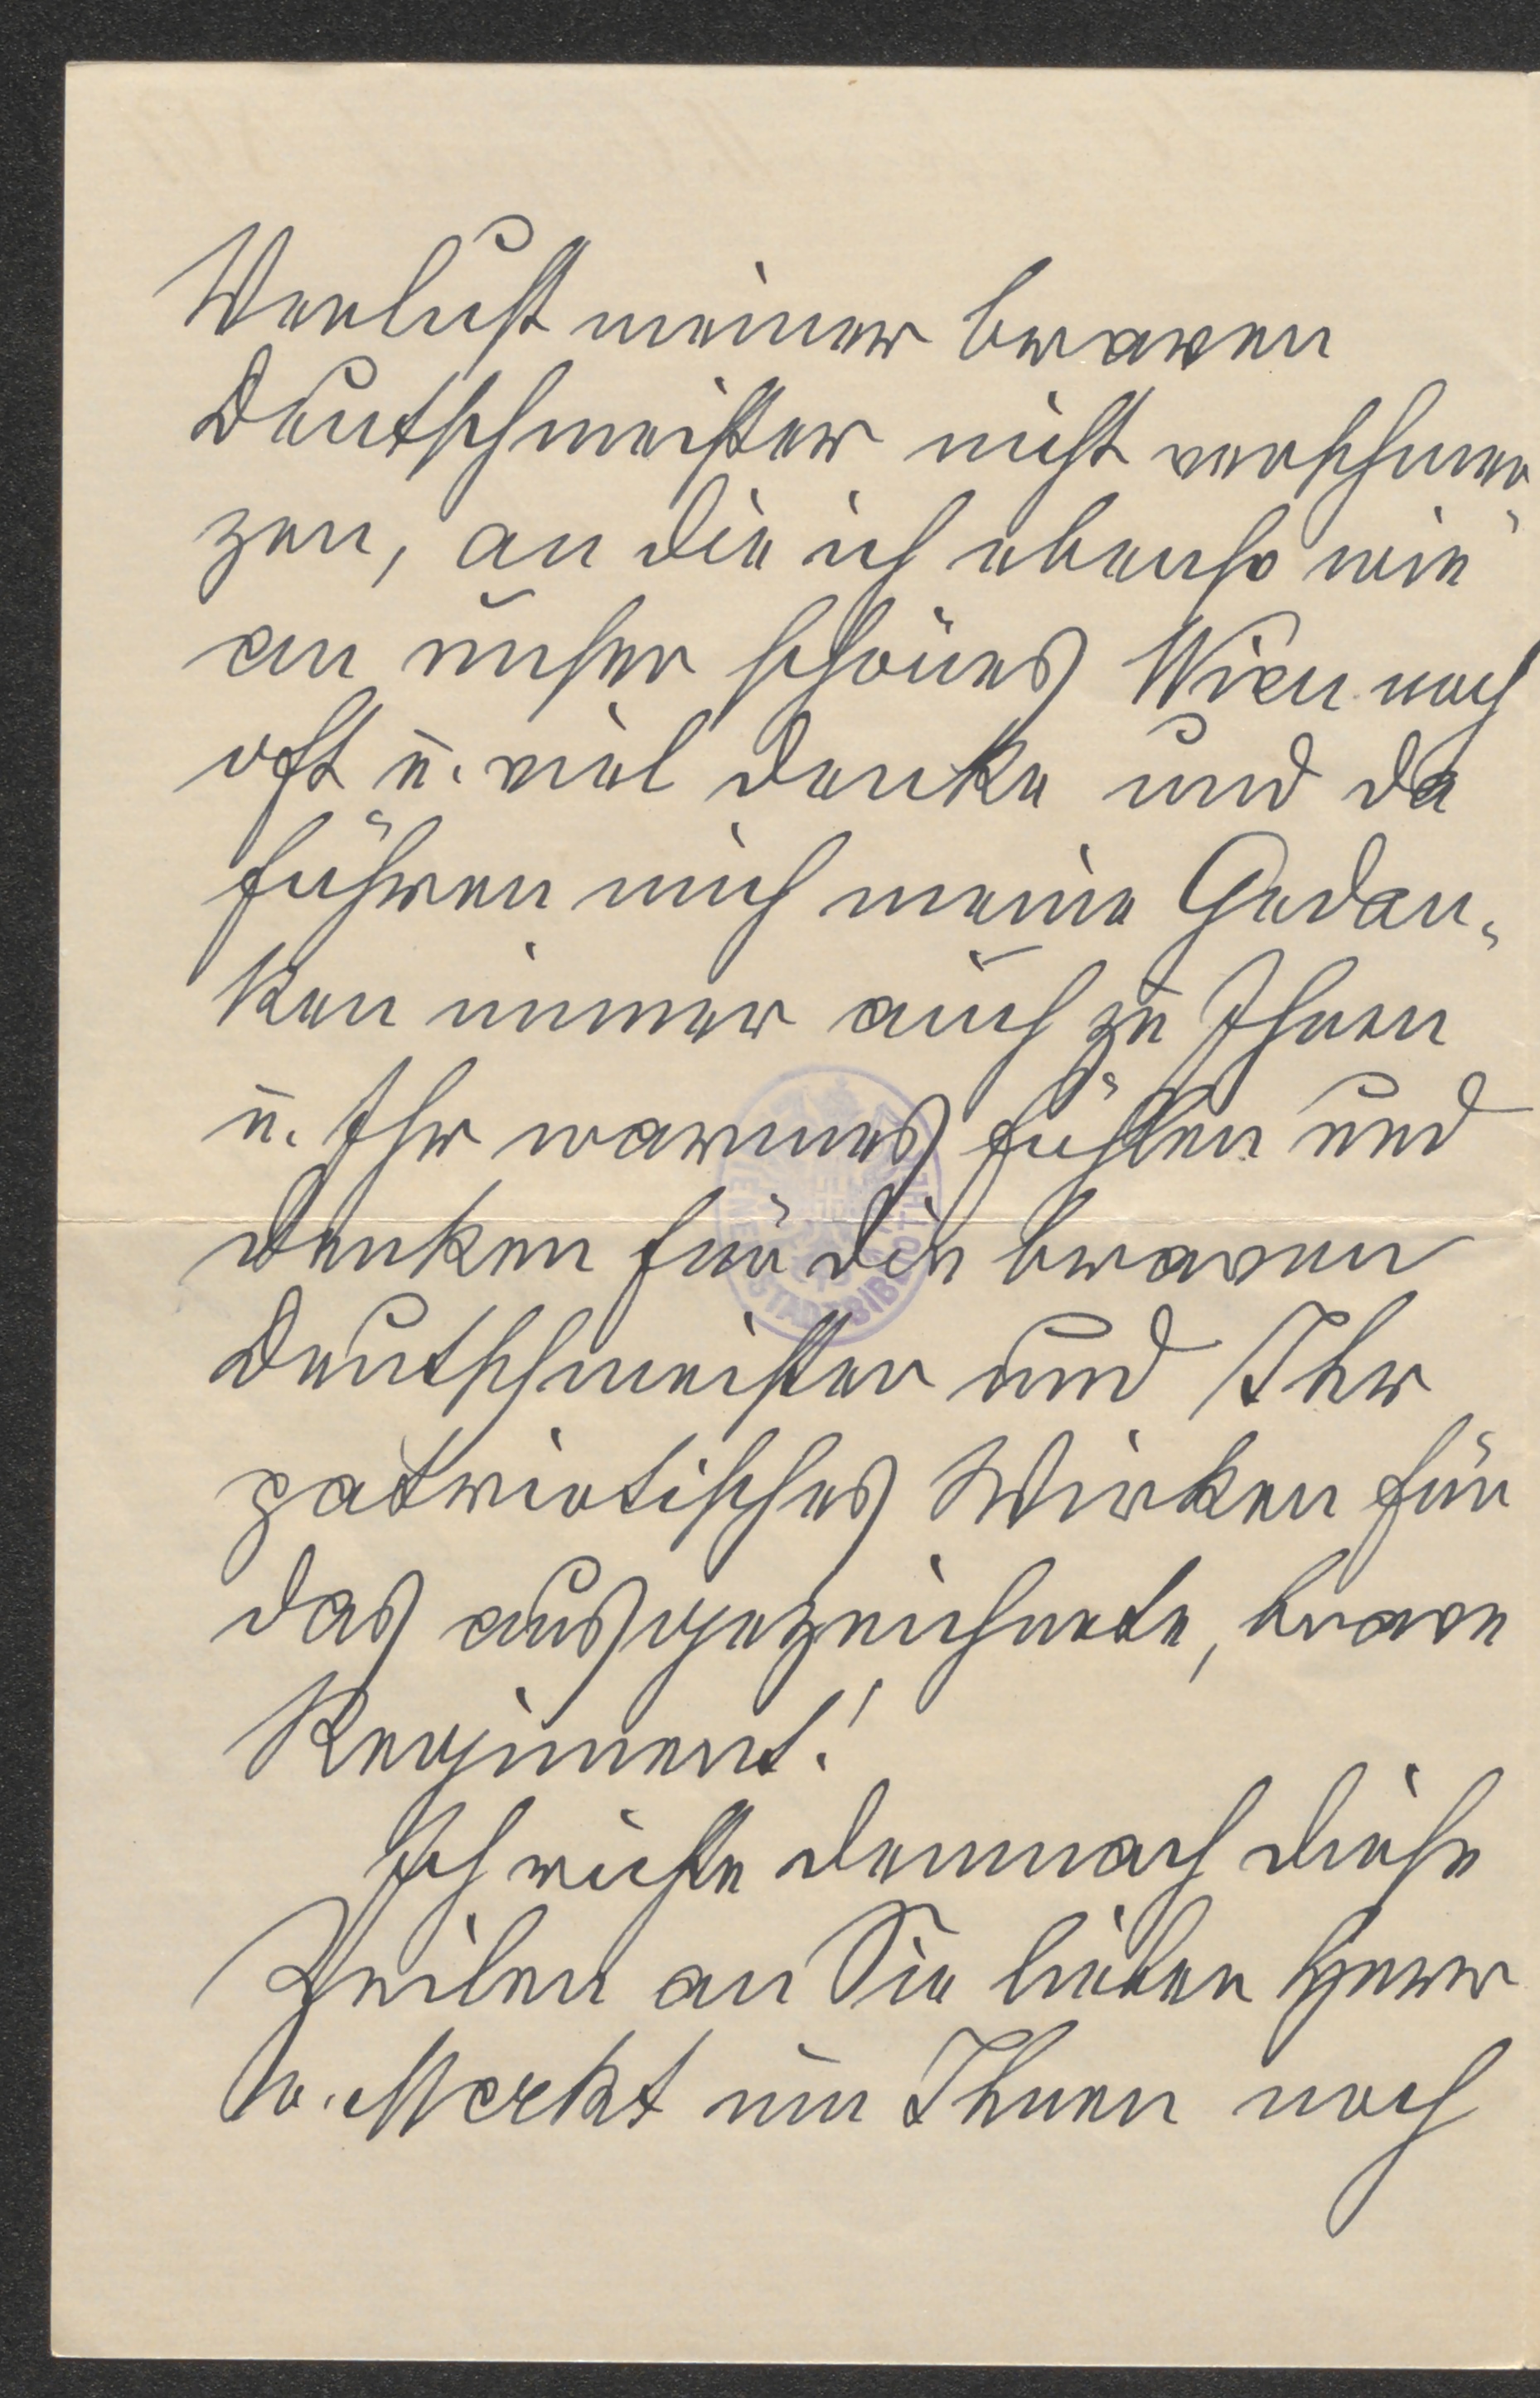 Verlust meiner braven
Deutschmeister nicht verschmer-
zen, an die ich ebenso wie
an unser schönes Wien noch
oft u. viel denke und da
führen mich meine Gedan-
ken immer auch zu Ihnen
u. Ihr warmes fühlen und
denken für die braven
Deutschmeister und Ihr
patriotisches Wirken für
das ausgezeichnete, brave
Regiment!
Ich richte demnach diese
Zeilen an Sie lieber Herr
v. Merkt um Ihnen noch